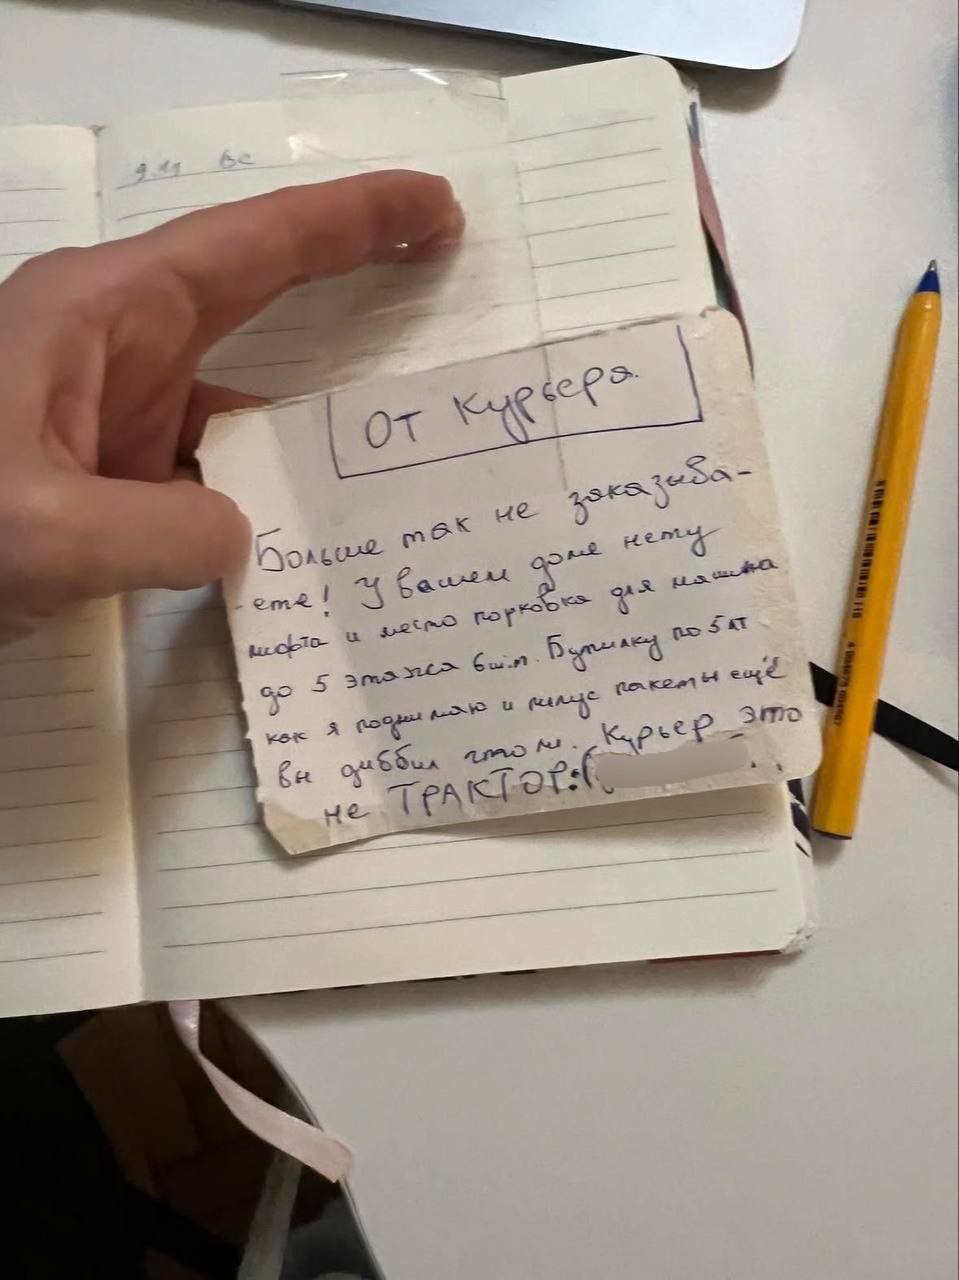 9.11 ВС
От Курьера.
Больше так не заказыва-
-ете! У вашем доме нету
лифта и место порковка для машина
до 5 этажа 6 шт. Бутилку по 5 лт
как я поднимаю и плюс пакеты ещё
вы диббил что ли. Курьер это
не ТРАКТОР:(